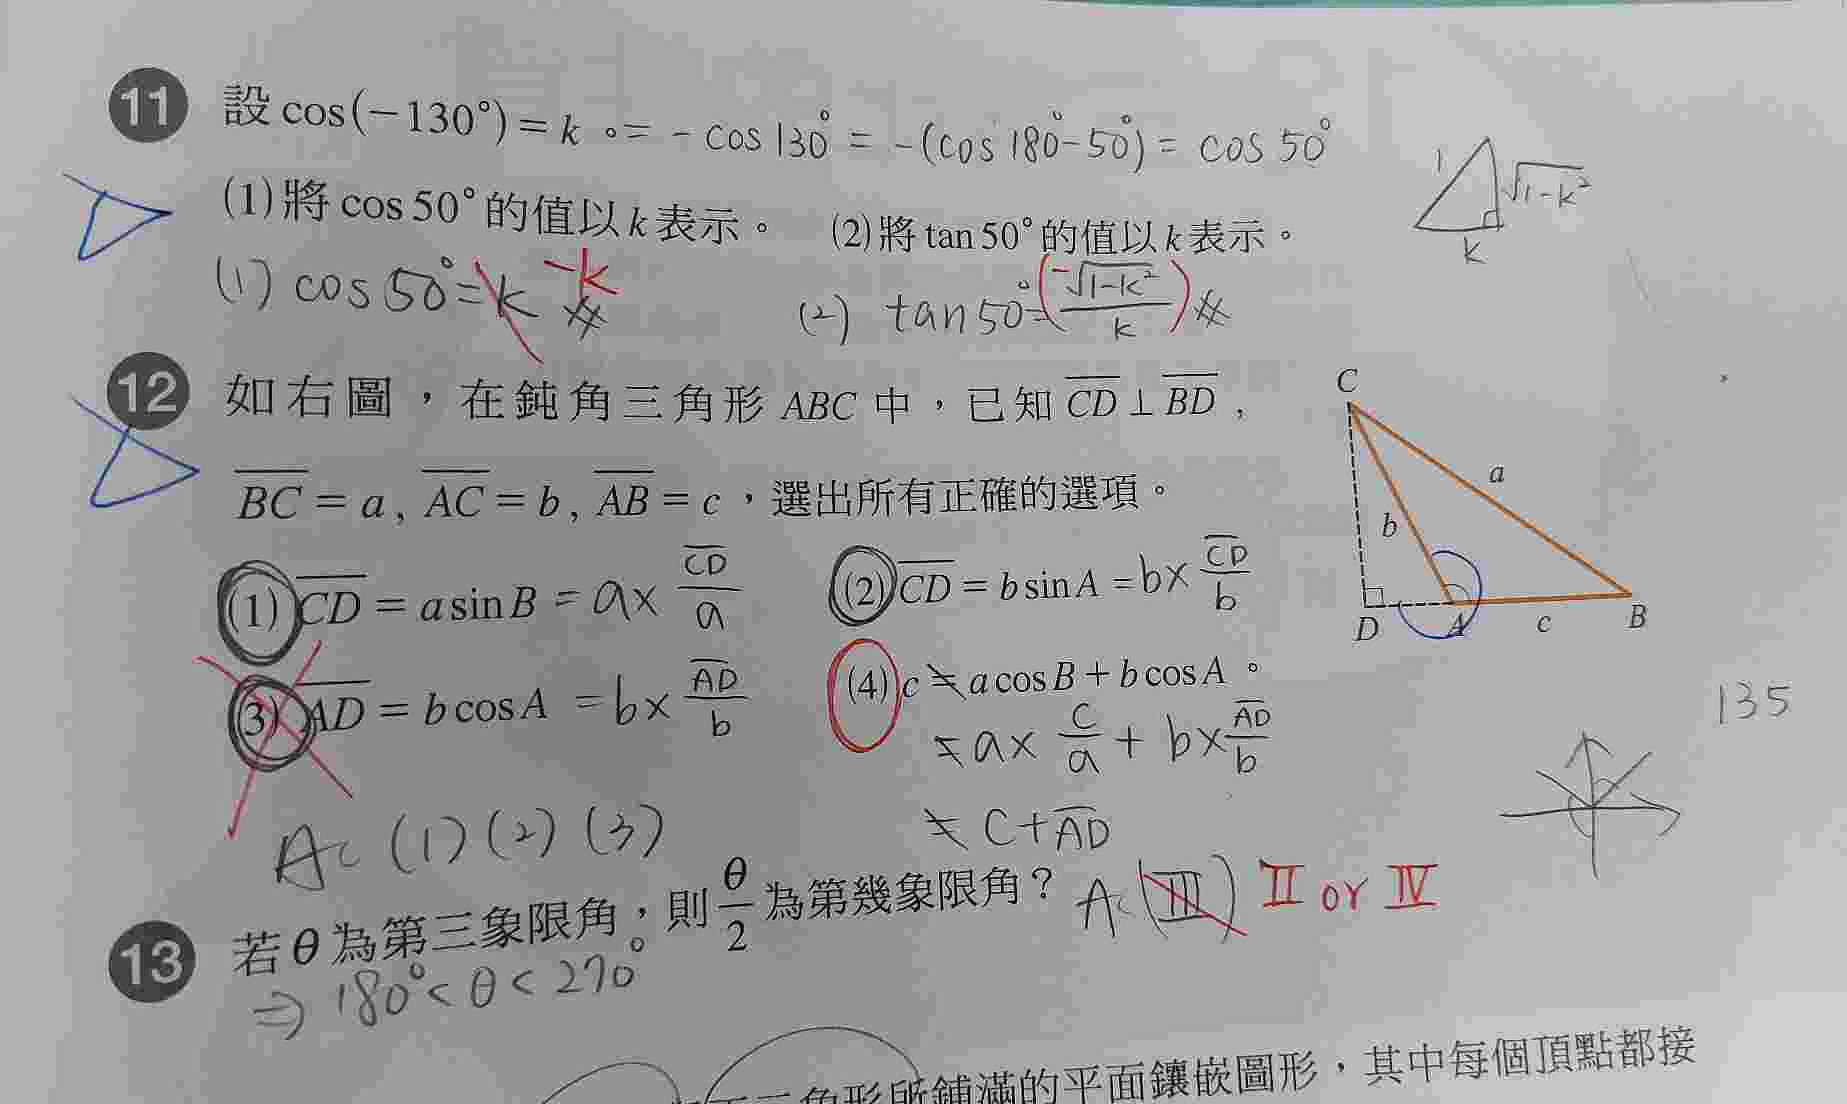 11 設 cos(−130°) = k 。= - cos 130° = -(cos 180°-50°) = cos 50°
1 √1-k² k
(1) 將 cos 50° 的值以 k 表示。 (2) 將 tan 50° 的值以 k 表示。
(1) cos 50° = k -k (2) tan 50° = (-√1-k² / k)
12 如右圖，在鈍角三角形 ABC 中，已知 CD ⊥ BD，
BC = a, AC = b, AB = c，選出所有正確的選項。
(1) CD = a sin B = a × CD/a (2) CD = b sin A = b × CD/b
(3) AD = b cos A = b × AD/b (4) c = a cos B + b cos A。
≠ a × c/a + b × AD/b
≠ C + AD
A: (1) (2) (3)
C
a
b
D A c B
135
13 若 θ 為第三象限角，則 θ/2 為第幾象限角？ A: (III) II or IV
⇒ 180° < θ < 270°
三角形所鋪滿的平面鑲嵌圖形，其中每個頂點都接